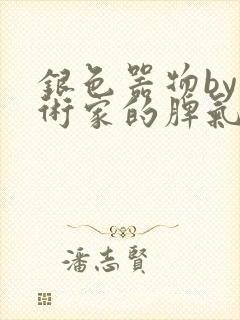 銀色器物by
術家的脾氣
潘志賢